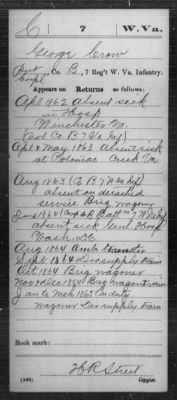 C 7 W. Va.
George Crow
Pvt Corpl, Co. B, 7 Reg't W. Va. Infantry.
Appears on Returns as follows:
Apl 1862 Absent sick
in Hosp
Winchester Va
(Bat Co B 7 Va Inf)
Apl & May 1863 Absent sick
at Potomac Creek Va
Aug 1863 (Co B 7 W Va Inf)
absent on detached
service Brig wagoner
1864 Batt 7 W Va Inf
absent sick Genl Hosp
Wash. DC
Aug 1864 Amb teamster
Sept 1864 Div supply train
Oct 1864 Brig wagoner
Nov & Dec 1864 Brig Wagon train
Jan to Mch 1865 On duty
wagoner Div supply train
Book mark:
H R Street
(546) Copyist.